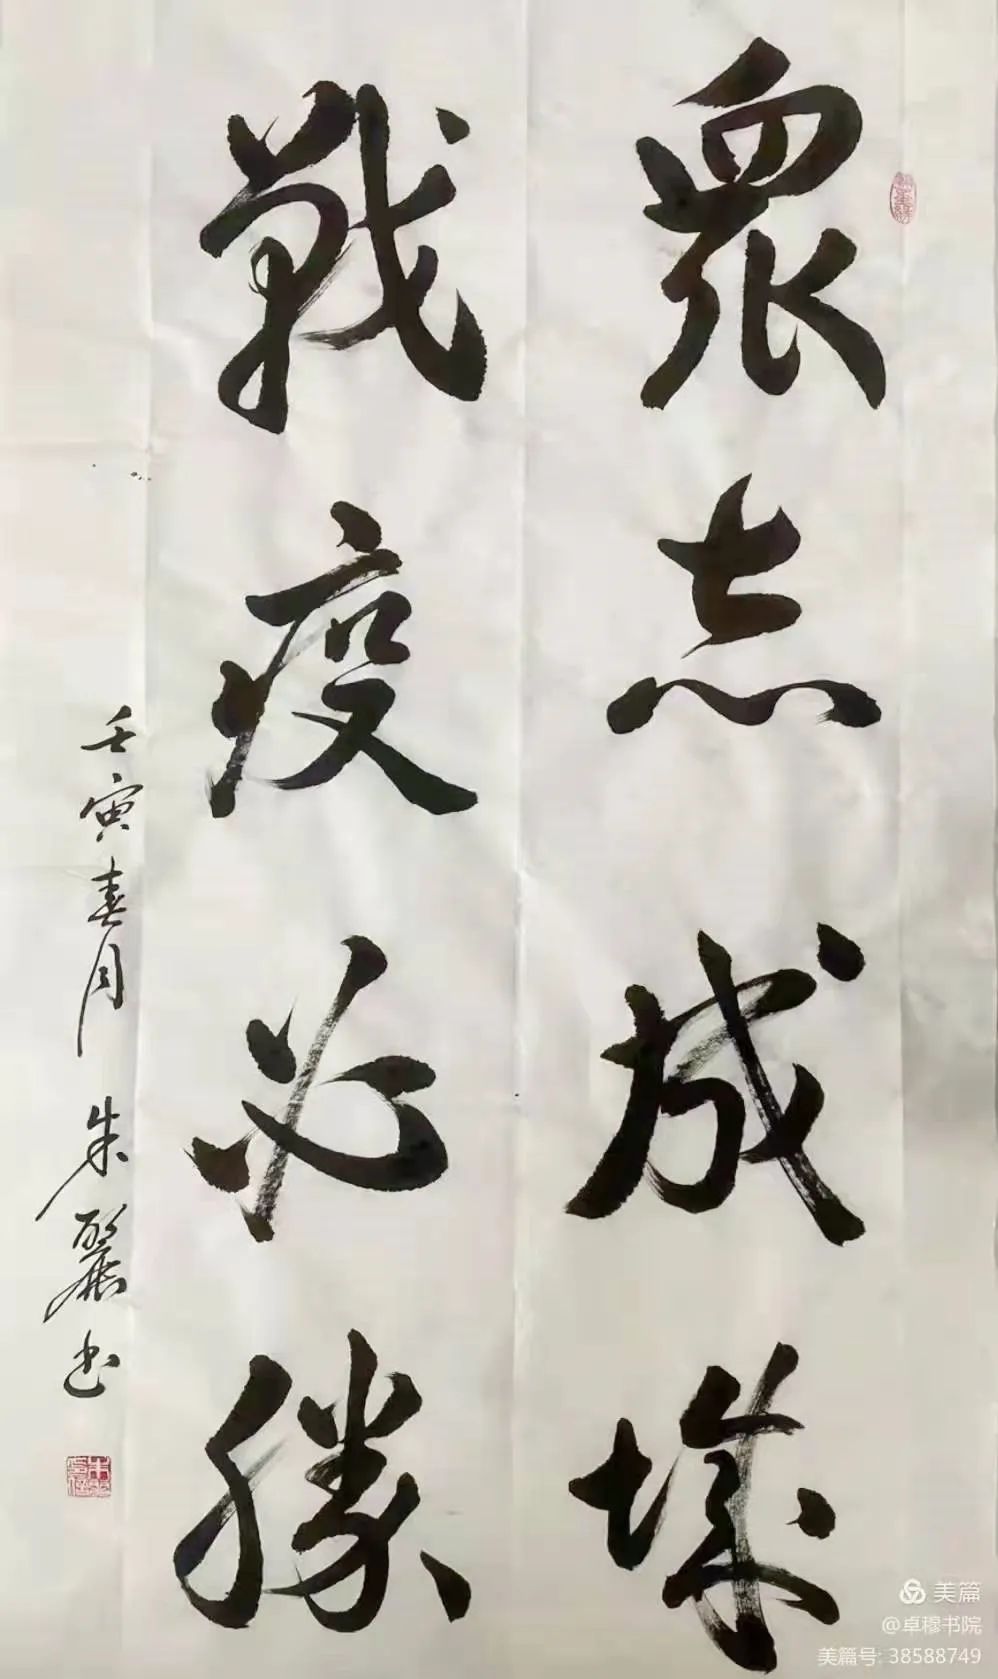 眾志成城
戰疫必勝
壬寅春月 朱麗书
美篇
@卓穆书院
美篇号: 38588749